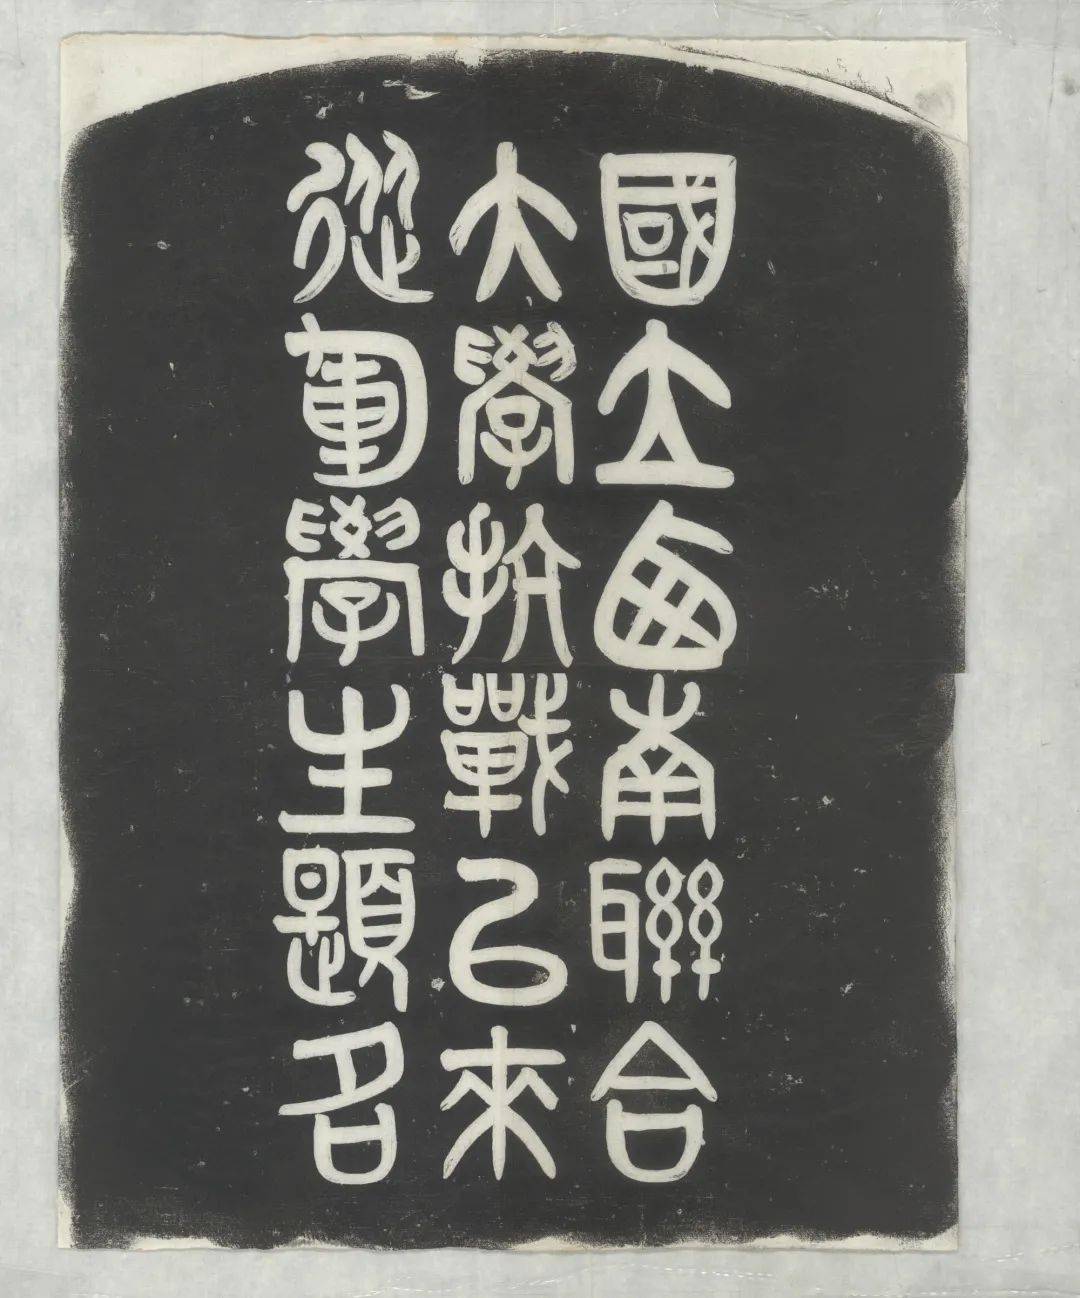 國立西南聯合
大學抗戰以來
從軍學生題名